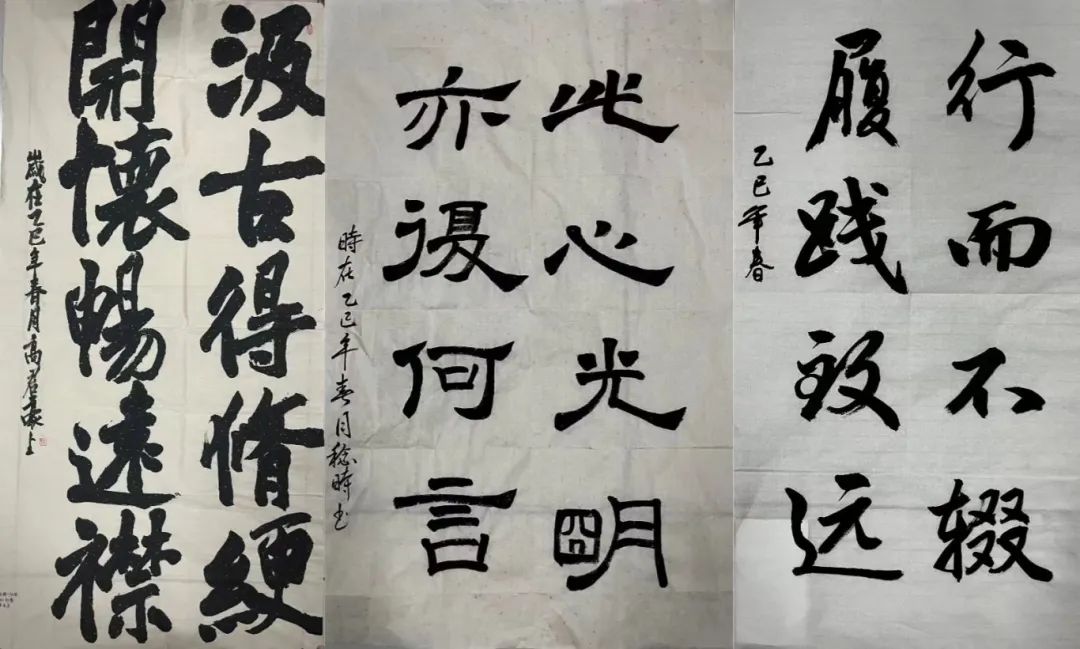 汲古得脩綆
開懷暢遠襟
歲在乙巳年春月高君豪上
此心光明
亦復何言
時在乙巳年春月稔時书
行而不辍
履践致远
乙巳年春